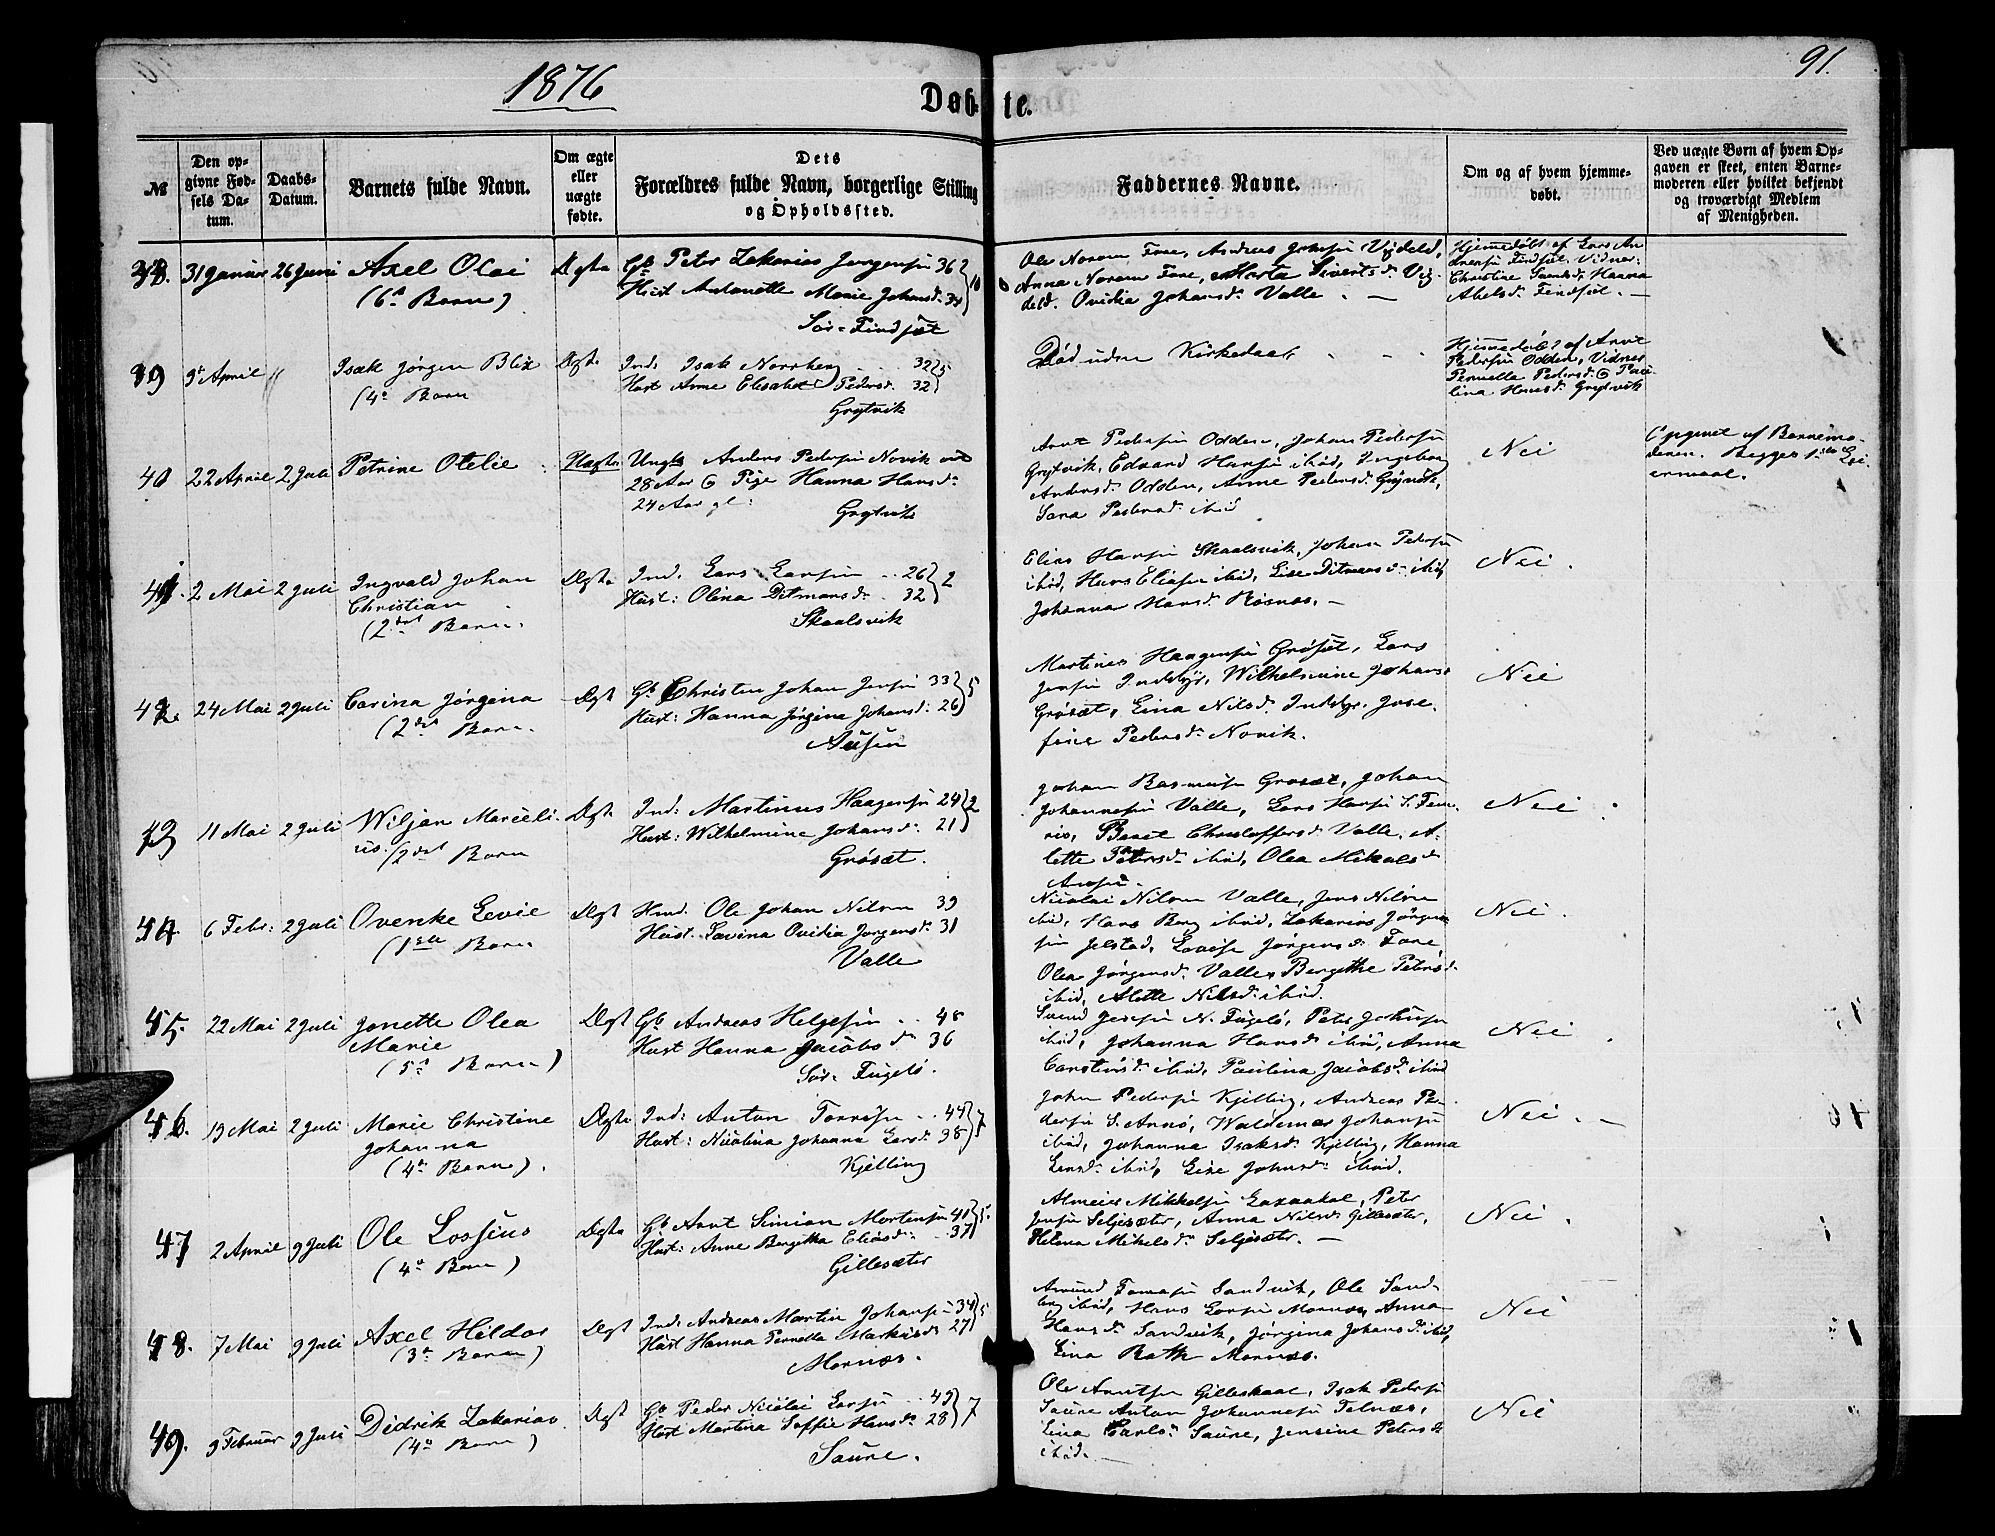 1876
91.
Døbte.
№
Den opgivne Fødsels Datum.
Daabs-Datum.
Barnets fulde Navn.
Om ægte eller uægte fødte.
Dets Forældres fulde Navn, borgerlige Stilling og Opholdssted.
Faddernes Navne.
Om og af hvem hjemmedøbt.
Ved uægte Børn af hvem Opgaven er skeet, enten Barnemoderen eller hvilket bekjendt og troværdigt Medlem af Menigheden.
38. 31 Januar 26 Juni Axel Olai Ægte Gb Peter Zakarias Jørgensen 36
(6te Barn) Hust Antonette Marie Johnsd. 34
Sør-Findsæt
Ole Norum Fore, Andreas Johnsen Vigdeld,
Anna Norum Fore, Marta Siverts d. Vig-
deld. Ovidia Johansd. Valle. —
Hjemmedøbt af Lars An
dreasen Findsæt. Vidner
Christine Svendsd. Hanna
Abelsd. Findsæt. —
39 9de April " Isak Jørgen Blix Ægte Ind. Isak Norrberg 32
(4de Barn Hust Anne Elisabet Pedersd. 32
Grytvik
Død uden Kirkedaab
Hjemmedøbt af Arnt
Pedersen Odden, Vidner
Pernella Pedersd. & Pau-
lina Hansd. Grytvik
40 22 April 2 Juli Petrine Otelie Uægte Ungk Anders Pedersen Novik
28 Aar & Pige Hanna Hansd.
24 Aar gl: Grytvik
Arnt Pedersen Odden, Johan Pedersen
Grytvik, Edvard Hansen ibid, Ingeborg
Andersd. Odden, Anne Pedersd. Grytvik,
Sara Pedersd. ibid
Nei
Opgivet af Barnemo-
deren. Begges 1ste Lei-
ermaal.
41. 2 Mai 2 Juli Ingvald Johan Ægte Ind. Lars Larsen 26 } 2
Christian Hust: Olina Ditmansd. 32
(2det Barn. Skaalsvik
Elias Hansen Skaalsvik, Johan Pedersen
ibid, Hans Eliasen ibid, Lise Ditmansd. ibid
Johanna Hansd. Røsnæs. —
Nei.
42. 24 Mai 2 Juli Carina Jørgina Ægt Gb Christen Johan Jensen 33 } 5
(2det Barn. Hust: Hanna Jørgine Johansd: 26
Aasen
Martines Haagensen Grøsæt, Lars
Jensen Indyr, Wilhelmine Johans
Grøsæt, Lina Nilsd. Indyr. Jose-
fine Pedersd. Novik.
Nei
43 11 Mai 2 Juli Wiljan Marieli- Ægte Ind: Martinus Haagensen 24 } 2
us. (2det Barn Hust: Wilhelmine Johansd. 21
Grøsæt.
Johan Rasmussen Grøsæt, Johan
Johannesen Valle, Lars Hansen S. Fem-
ris, Beret Christoffersd. Valle, A-
lette Petersd. ibid, Olea Mikals d.
Nei.
44. 6 Febr: 2 Juli Ovenke Levie Ægt Hmd. Ole Johan Nilsen 39
(1ste Barn Hust. Lavina Ovidia Jørgensd. 31
Valle
Nicolai Nilsen Valle, Jens Nilsen
ibid, Hans Berg ibid, Zakarias Jørgen
sen Jelstad, Lovise Jørgensd. Fore
Olea Jørgensd. Valle, Bergitke Petersd.
ibid, Alette Nilsd. ibid.
Nei.
45. 22 Mai 2 Juli Jonette Olea Ægt Gb Andreas Helgesen 48
Marie Hust Hanna Jacobs d 36
(5te Barn) Sør-Fugelø.
Svend Jensen N. Fugelø, Peter Johnsen
ibid, Johanna Hansd. ibid, Anna
Carstensd. ibid, Paulina Jacobsd. ibid
Nei
46. 19 Mai 2 Juli Marie Christine Ægte Ind: Anton Torresen 44 } 7
Johanna Hust: Nicolina Johanna Larsd. 38
(4de Barn). Kjelling
John Pedersen Kjelling, Andreas Pe-
dersen S. Arnø, Waldemar Johansen
ibid, Johanna Isaksd. Kjelling, Hanna
Larsd. ibid, Lise Johnsd. ibid.
Nei. —
47 2 April 9 Juli Ole Lossius Ægte Gb Arnt Simian Mortensen 41 } 5.
(4de Barn) Hust: Anne Bergitha Eliasd: 37
Gillesæter
Almeid Mikkelsen Laxaakal, Peter
Jensen Seljesæter, Anna Nilsd. Gillesæter,
Helena Mikelsd. Seljesæter. —
Nei.
48. 7 Mai 9 Juli Axel Hildor Ægt Ind: Andreas Martin Johansen 34 } 5
(3de Barn) Hust Hanna Pernella Markusd. 27
Mornæs.
Amund Tomasen Sandvik, Ole Sand-
berg ibid, Hans Larsen Mornæs, Anna
Hansd. Sandvik, Jørgina Johansd. ibid,
Lina Rath Mornæs.
Nei
49. 9 Februar 9 Juli Didrik Zakarias Ægt Gb Peder Nicolai Larsen 49 } 7
(4de Barn) Hust Martina Soffie Hansd. 28
Saure.
Ole Arntsen Gilleskaal, Isak Pedersen
Saure Anton Johannesen Telnæs,
Lina Carlsd. Saure, Jensine Petersd.
ibid. —
Nei